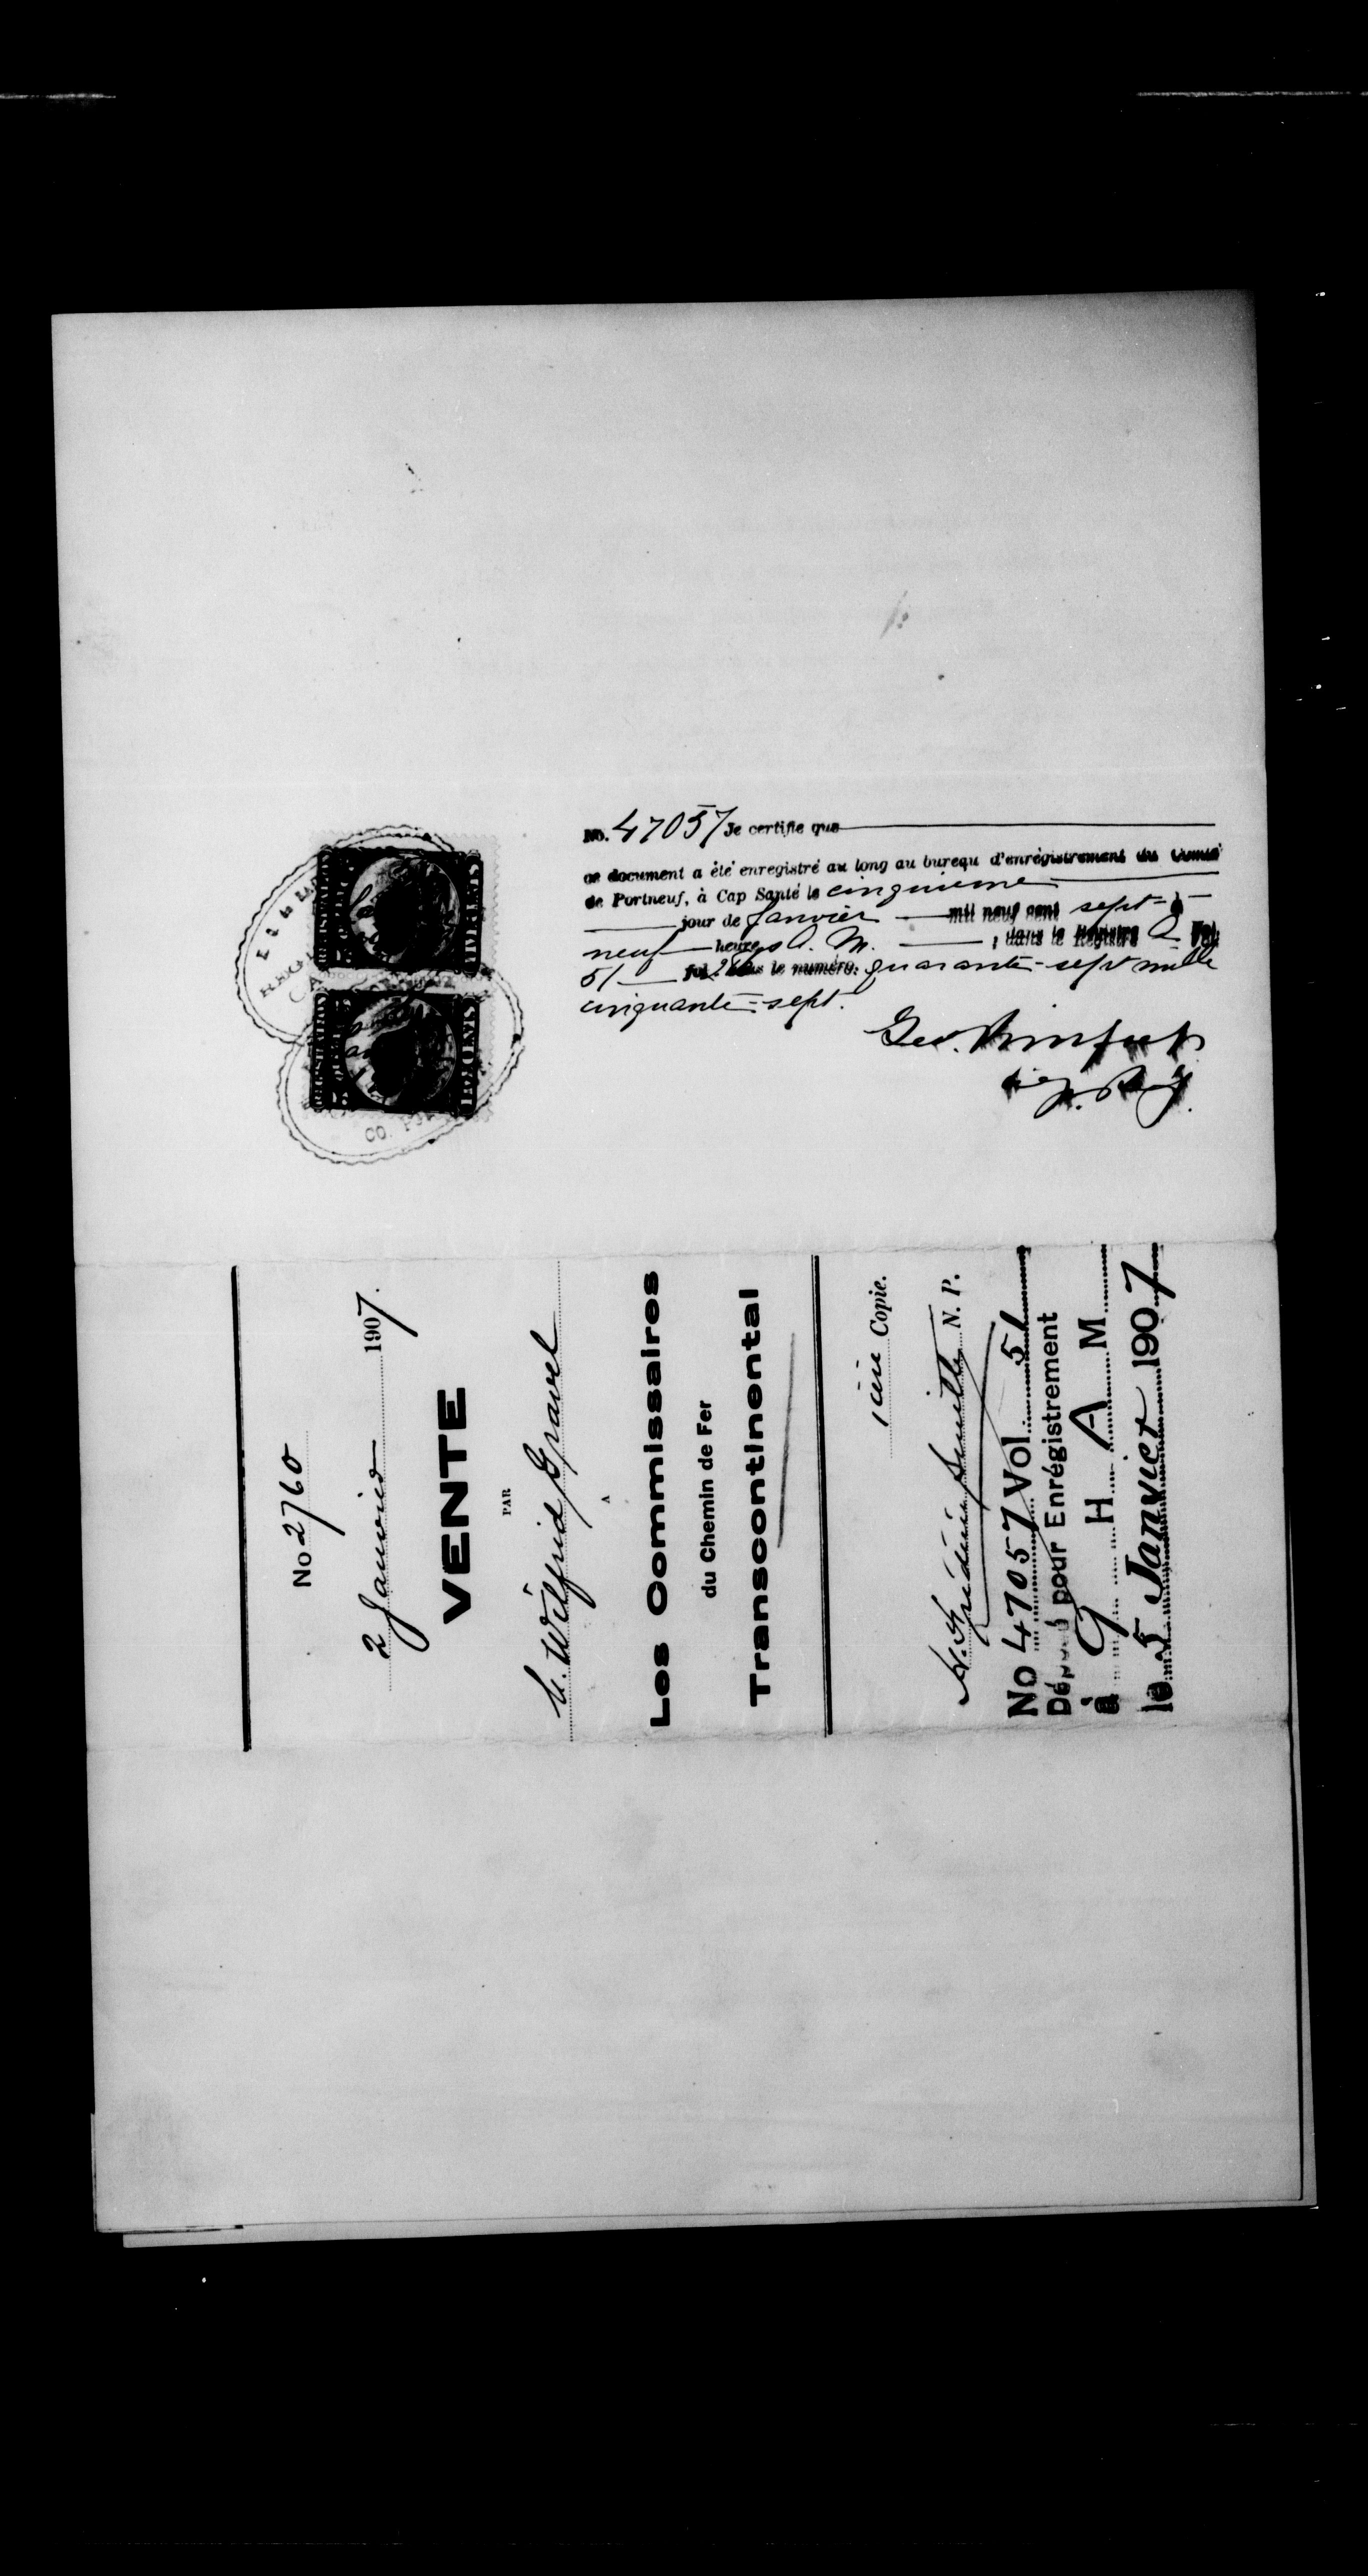 No. 47057 Je certifie que
ce document a été enregistré au long au bureau d'enrégistrement du Comté
de Portneuf, à Cap Santé le cinquieme
jour de Janvier mil neuf cent sept à
neuf heures A. M. , dans le Registre Vol.
51 fol. sous le numéro: quarante-sept mille
cinquante-sept.
Geo.
REGISTRATION
FIVE CENTS
REGISTRATION
CO.
No 2760
2 Janvier 1907.
VENTE
PAR
Wilfrid Gravel
A
Les Commissaires
du Chemin de Fer
Transcontinental
1ère Copie.
N. P.
No 47057 Vol 51
Déposé pour Enrégistrement
à 9 H A M
le 5 Janvier 1907